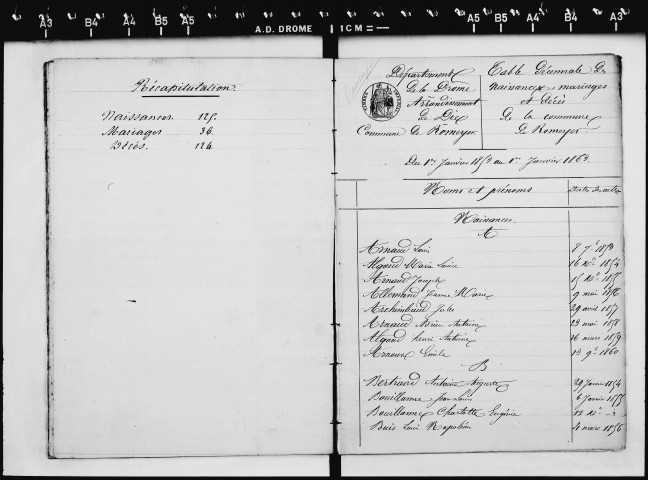 A3 B4 A5 B5 A.D. DROME 1CM= A5 B5 A4 B4 A3
Récapitulation.
Naissances. 125.
Mariages 36.
Décès. 124.
Département
de la Drôme
Arrondissement
de Die
Commune de Romeyer
Table Décennale des
naissances, mariages
et décès
de la commune
de Romeyer
Du 1er Janvier 1853 au 1er Janvier 1863
Noms et prénoms Dates des actes
Naissances.
A
Arnaud Louis 8 7e 1853
Algoud Marie Louise 16 Xe 1854
Arnaud Joseph 15 Xe 1855
Allemand Jeanne Marie 9 mai 1856
Archimbaud Jules 29 avril 1857
Arnaud Adrien Antoine 23 mai 1858
Algoud henri Antoine 16 mars 1859
Arnoux Emile 13 9e 1860
B
Bertrand Antoine Auguste 29 Janvier 1854
Bouillanne Jean Louis 6 Janvier 1855
Bouillanne Charlotte Eugénie 12
Buis Louis Napoléon 4 mars 1856